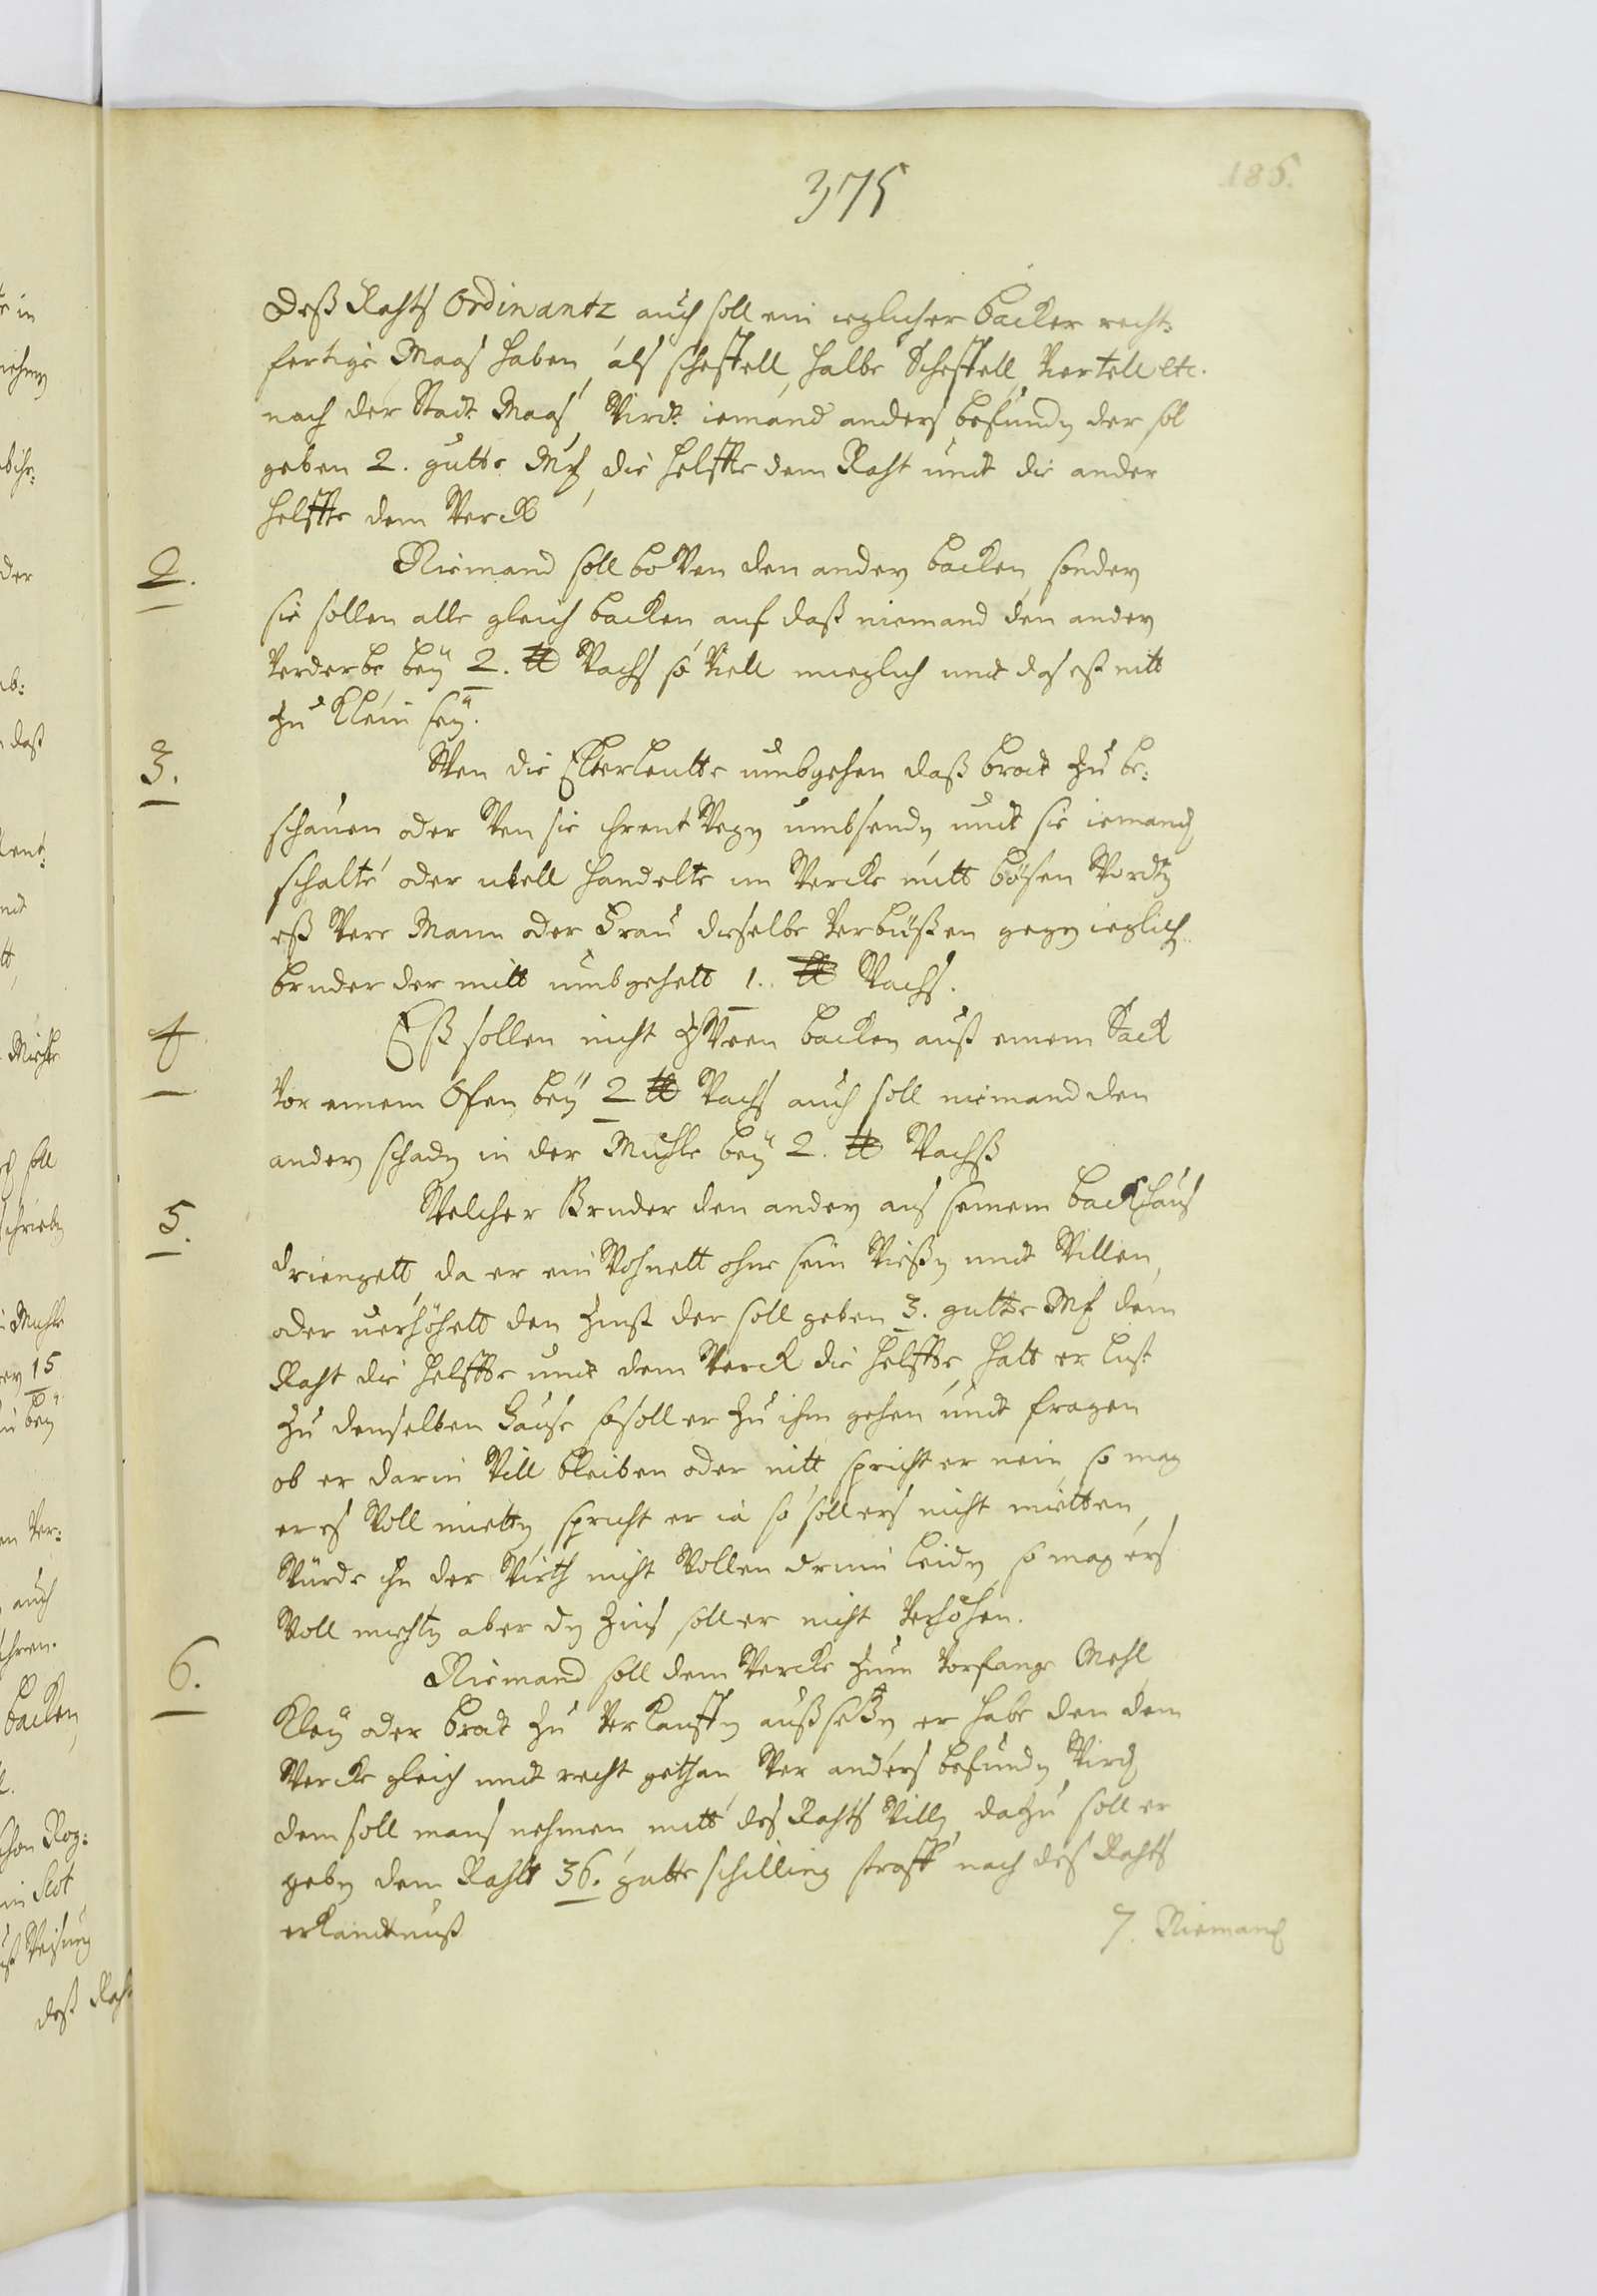 375
185.
deß Rahts Ordinantz auch soll ein ieglicher backer recht:
fertige Maas haben, als scheffell, halbe Scheffell, Viertell etc.
nach der Stadt Maas, Wirdt iemand anders befunden der sol
geben 2. gutte Mk, die helffte dem Raht undt die ander
helffte dem Werck
2. Niemand soll boven den andern backen, sondern
sie sollen alle gleich backen auf daß niemand den andern
Verderbe bey 2. ℔ Wachs so Viell mieglich undt das eß nitt
zu klein sey.
3. Wen die Elterleutte umbgehen daß brodt zu be:
schauen oder Wen sie ihrent Wegen umbsenden undt sie iemand
schalte oder ubell handelte im Wercke mitt bösen Wordten
eß Were Mann oder Frau dieselbe Verbüßen gegen ieglichen
bruder der mitt umbgehett 1. ℔ Wachs.
4 Eß sollen nicht zWeen backen auß einem Sack
Vor einem Ofen bey 2 ℔ Wachs auch soll niemand den
andern schaden in der Muhle bey 2. ℔ Wachß
5. Welcher Bruder den andern aus seinem backhaus
driengett, da er ein Wohnett ohne sein Wießen undt Willen,
oder uerhöhett den Zinß der soll geben 3. gutte Mk dem
Raht die helffte undt dem Werck die helffte, hatt er lust
zu demselben Hause so soll er zu ihm gehen undt fragen
ob er darin Will bleiben oder nitt spricht er nein, so mag
er es Woll mietten, spricht er ia so soll ers nicht mietten,
Würde ihn der Wirth nicht Wollen drinn leiden, so mag ers
Woll miehten aber den Zins soll er nicht Verhöhen.
6. Niemand soll dem Wercke zum Vorfange Mehl,
Kley oder brodt zu Verkauffen außsetzen, er habe den dem
Wercke gleich undt recht gethan Wer anders befunden Wird
dem soll mans nehmen mitt des Rahts Willen, dazu soll er
geben dem Rahtt 36. gutte schilling straff nach des Rahts
erkandtnuß
7. Niemand